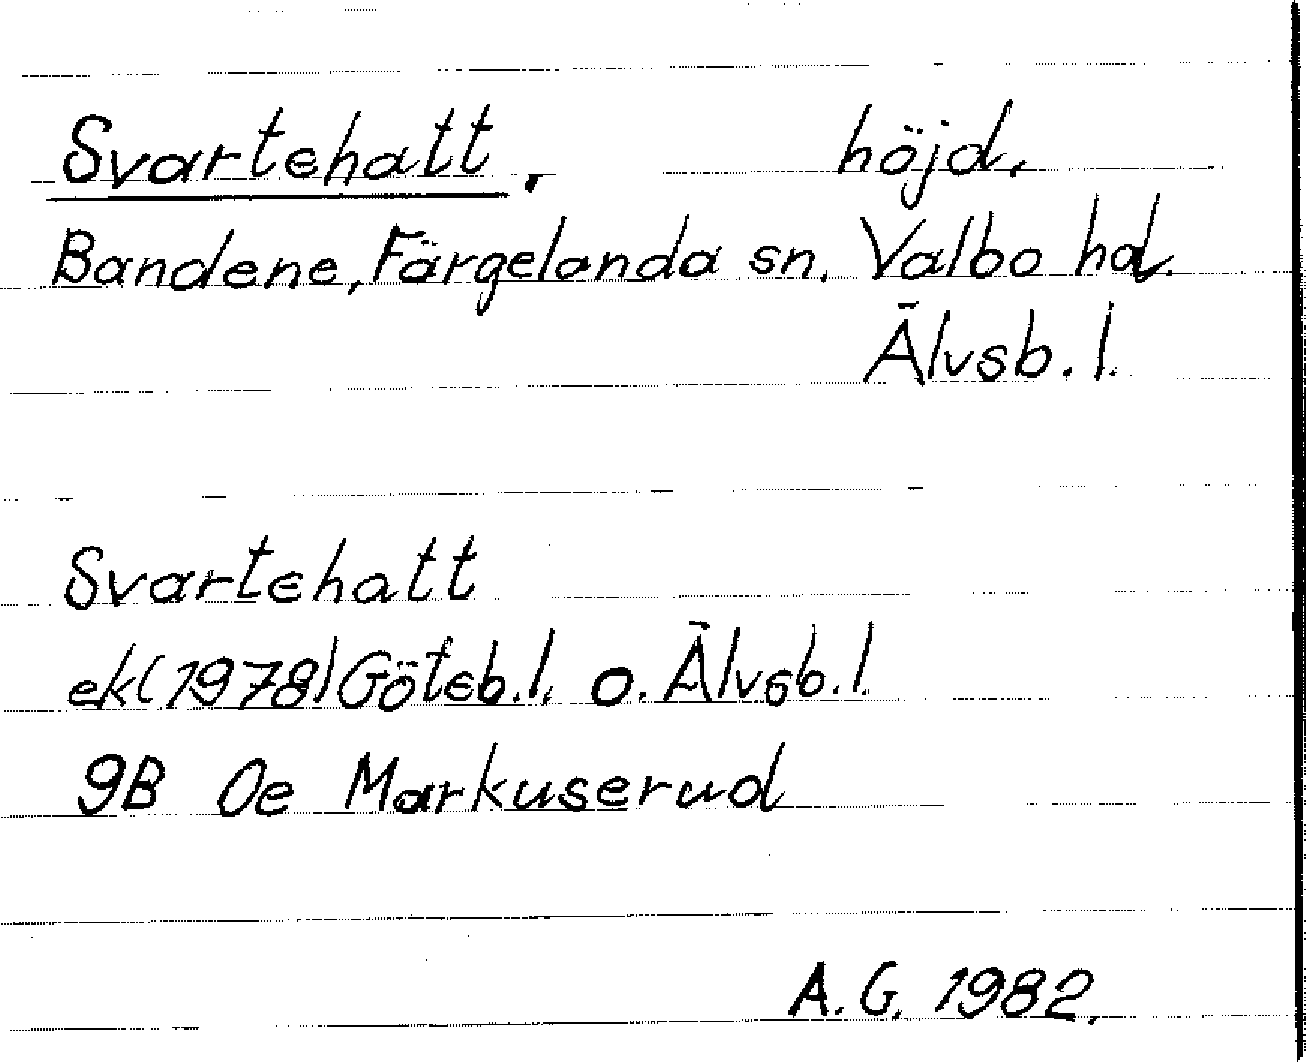 Svartehatt. höjd.
Bandene, Färgelanda sn. Valbo hd.
Älvsb. l.
Svartehatt
ek (1978) Göteb. l. o. Älvsb. l.
9B 0e Markuserud
A. G. 1982.